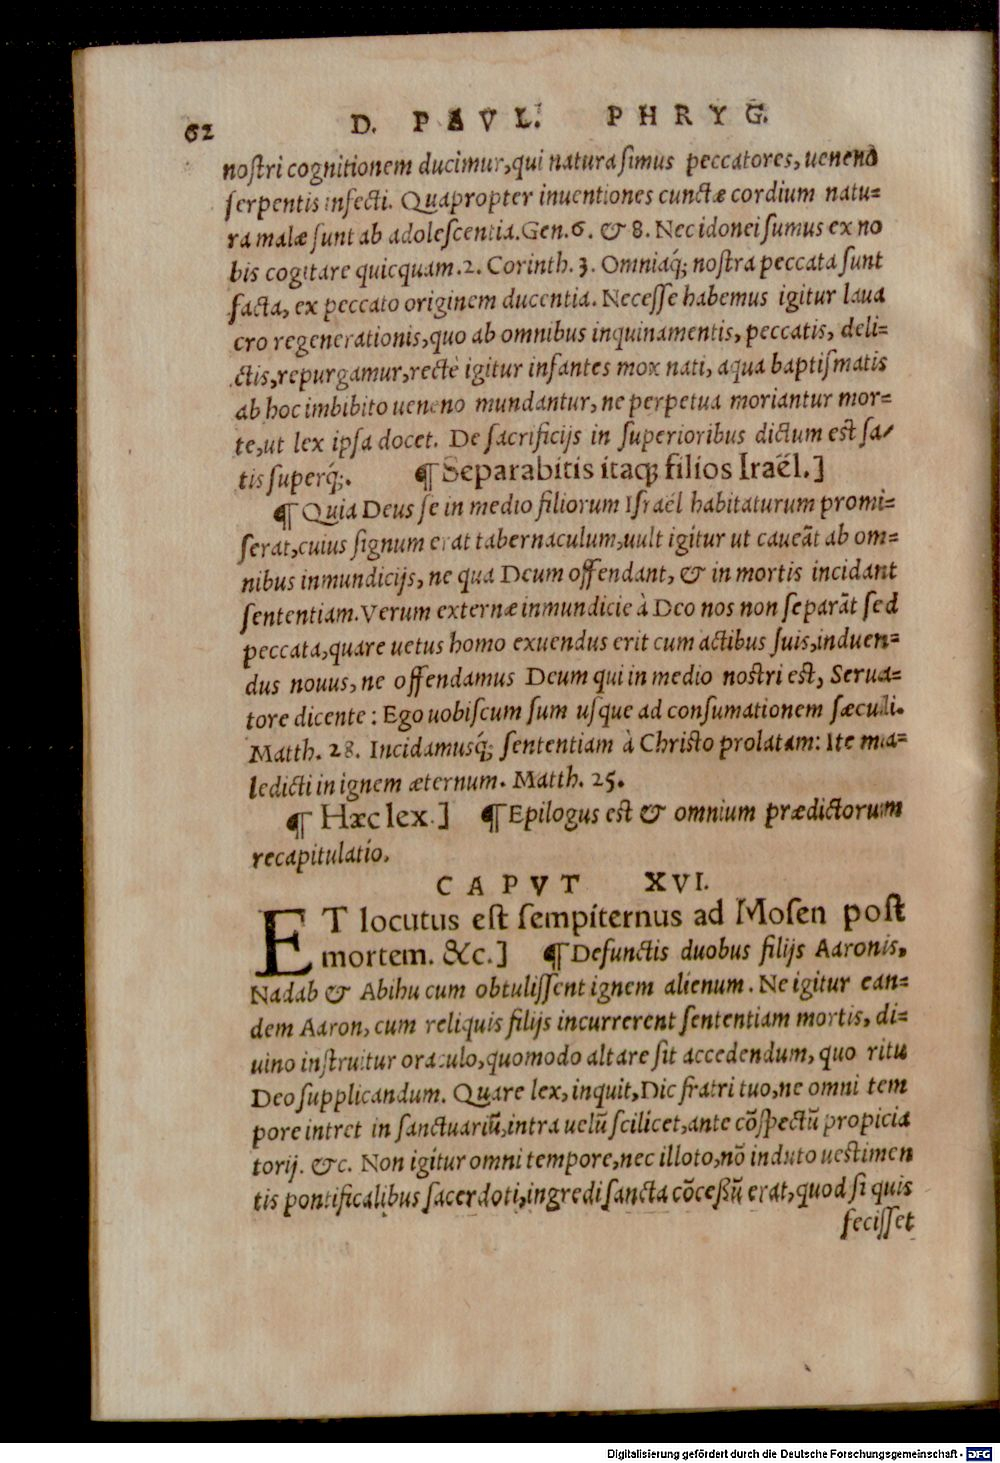 62 D. PAVL. PHRYG.
nostri cognitionem ducimur, qui natura simus peccatores, ueneno
serpentis infecti. Quapropter inuentiones cunctæ cordium natu=
ra malæ sunt ab adolescentia. Gen. 6. & 8. Nec idonei sumus ex no
bis cogitare quicquam. 2. Corinth. 3. Omniaq́; nostra peccata sunt
facta, ex peccato originem ducentia. Necesse habemus igitur laua
cro regenerationis, quo ab omnibus inquinamentis, peccatis, deli=
ctis, repurgamur, rectè igitur infantes mox nati, aqua baptismatis
ab hoc imbibito ueneno mundantur, ne perpetua moriantur mor=
te, ut lex ipsa docet. De sacrificijs in superioribus dictum est sa/
tis superq́;. ¶ Separabitis itaq; filios Iraël.]
¶ Quia Deus se in medio filiorum Israël habitaturum promi=
serat, cuius signum erat tabernaculum, uult igitur ut caueãt ab om=
nibus inmundicijs, ne qua Deum offendant, & in mortis incidant
sententiam. Verum externæ inmundicie à Deo nos non separãt sed
peccata, quare uetus homo exuendus erit cum actibus suis, induen=
dus nouus, ne offendamus Deum qui in medio nostri est, Serua=
tore dicente : Ego uobiscum sum usque ad consumationem sæculi.
Matth. 28. Incidamusq́; sententiam à Christo prolatam: Ite ma=
ledicti in ignem æternum. Matth. 25.
¶ Hæc lex.] ¶ Epilogus est & omnium prædictorum
recapitulatio.
CAPVT XVI.
ET locutus est sempiternus ad Mosen post
mortem. &c.] ¶ Defunctis duobus filijs Aaronis,
Nadab & Abihu cum obtulissent ignem alienum. Ne igitur ean=
dem Aaron, cum reliquis filijs incurrerent sententiam mortis, di=
uino instruitur oraculo, quomodo altare sit accedendum, quo ritu
Deo supplicandum. Quare lex, inquit, Dic fratri tuo, ne omni tem
pore intret in sanctuariũ, intra uelũ scilicet, ante cõspectũ propicia
torij. &c. Non igitur omni tempore, nec illoto, nõ induto uestimen
tis pontificalibus sacerdoti, ingredi sancta cõceßũ erat, quod si quis
fecisset
Digitalisierung gefördert durch die Deutsche Forschungsgemeinschaft - DFG